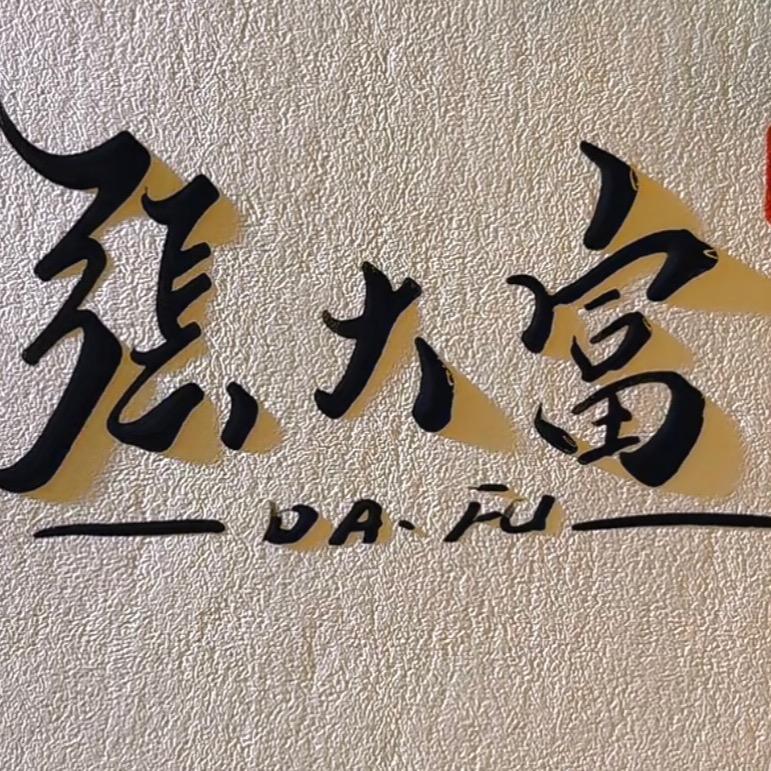 張大富
DA·FU